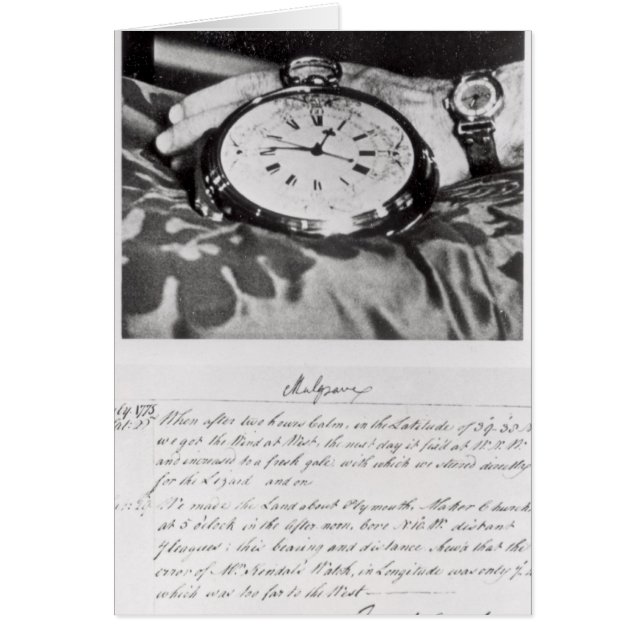 Mulgrave
1775
When after two hours Calm, in the Latitude of 39°.38 N
we got the Wind at West, the next day it fix'd at W.S.W.
and increased to a fresh gale with which we steered directly
for the Lezard and on
We made the Land about Plymouth, Maker Church,
at 5 o'clock in the After noon, bore N10.W. distant
7 leagues; this bearing and distance shew'd that the
error of Mr. Kendal's Watch, in Longitude was only 7'.
which was too far to the West